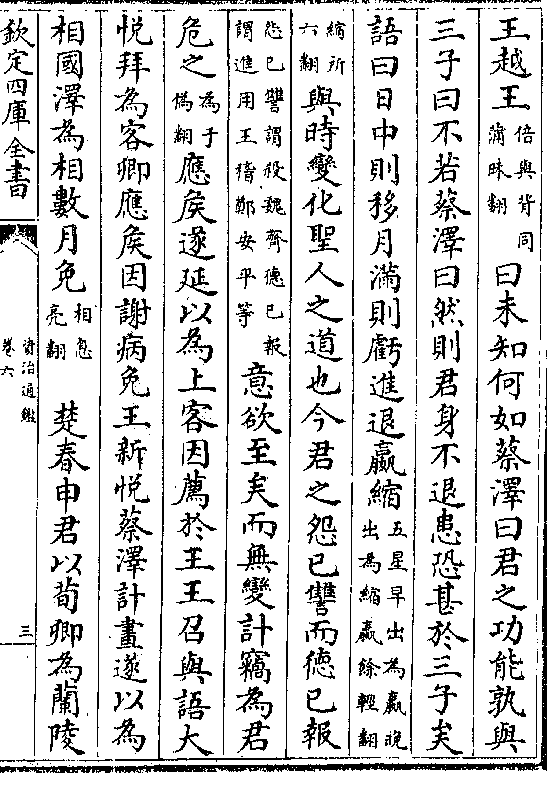 王越王倍與背同蒲昧翻曰未知何如蔡澤曰君之功能孰與
三子曰不若蔡澤曰然則君身不退患恐甚於三子矣
語曰日中則移月滿則虧進退嬴縮五星早出為嬴晚出為縮嬴餘輕翻
縮所六翻與時變化聖人之道也今君之怨已讐而德已報
怨已讐謂殺魏齊德已報謂進用王稽鄭安平等意欲至矣而無變計竊為君
危之為于偽翻應侯遂延以為上客因薦於王王召與語大
悅拜為客卿應侯因謝病免王新悅蔡澤計畫遂以為
相國澤為相數月免相息亮翻 楚春申君以荀卿為蘭陵
欽定四庫全書
資治通鑑
卷六
三